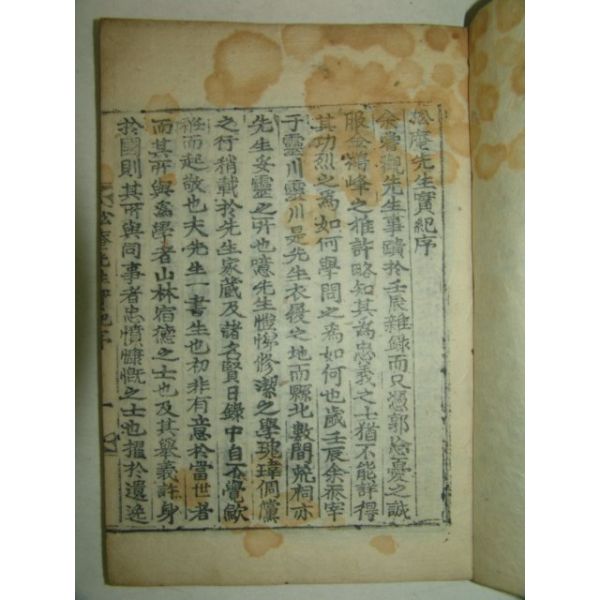 松庵先生實紀序
余嘗觀先生事蹟於壬辰雜錄而只憑郭忘憂之誠
服金鶴峰之推許略知其爲忠義之士猶不能詳得
其功烈之爲如何學問之爲如何也歲壬辰余忝宰
于靈川雲川是先生衣履之地而縣北數間荒祠亦
先生妥靈之所也噫先生愷悌修潔之學瑰瑋倜儻
之行稍載於先生家藏及諸名賢日錄中自不覺歛
袵而起敬也夫先生一書生也初非有意於當世者
而其所與爲學者山林宿德之士也及其擧義許身
於國則其所與同事者忠憤慷慨之士也擢於遺逸
松庵先生實紀序 一